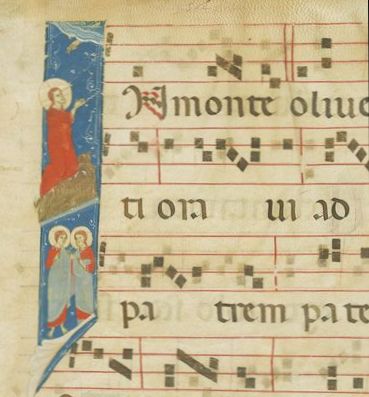 In monte olive
ti ora vi ad
pa trem pate